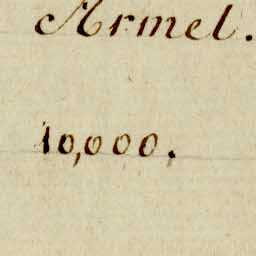 Armel.
10,000.